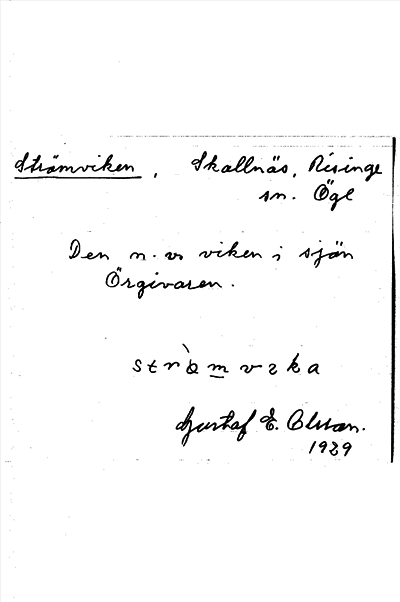 Strömviken, Skallnäs, Risinge
sn. Ögl
Den n.v. viken i sjön
Örgivaren.
strömvzka
Gustaf E. Olsson.
1929